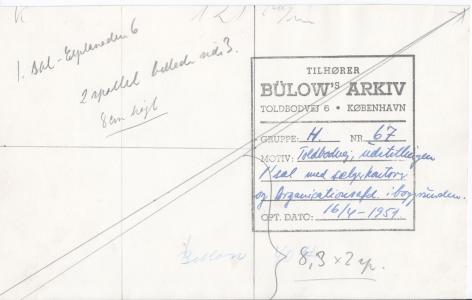 K 121
1. sal - Esplanaden 6
2 spaltet billede side 3.
8 cm højt
TILHØRER
BÜLOW's ARKIV
TOLDBODVEJ 6 • KØBENHAVN
GRUPPE: H NR. 67
MOTIV: Toldbodvej, udstillingen
1' sal med salgskontor
og Organisationsafd. i baggrunden.
OPT. DATO: 16/4 - 1951
8,3 × 2 sp.